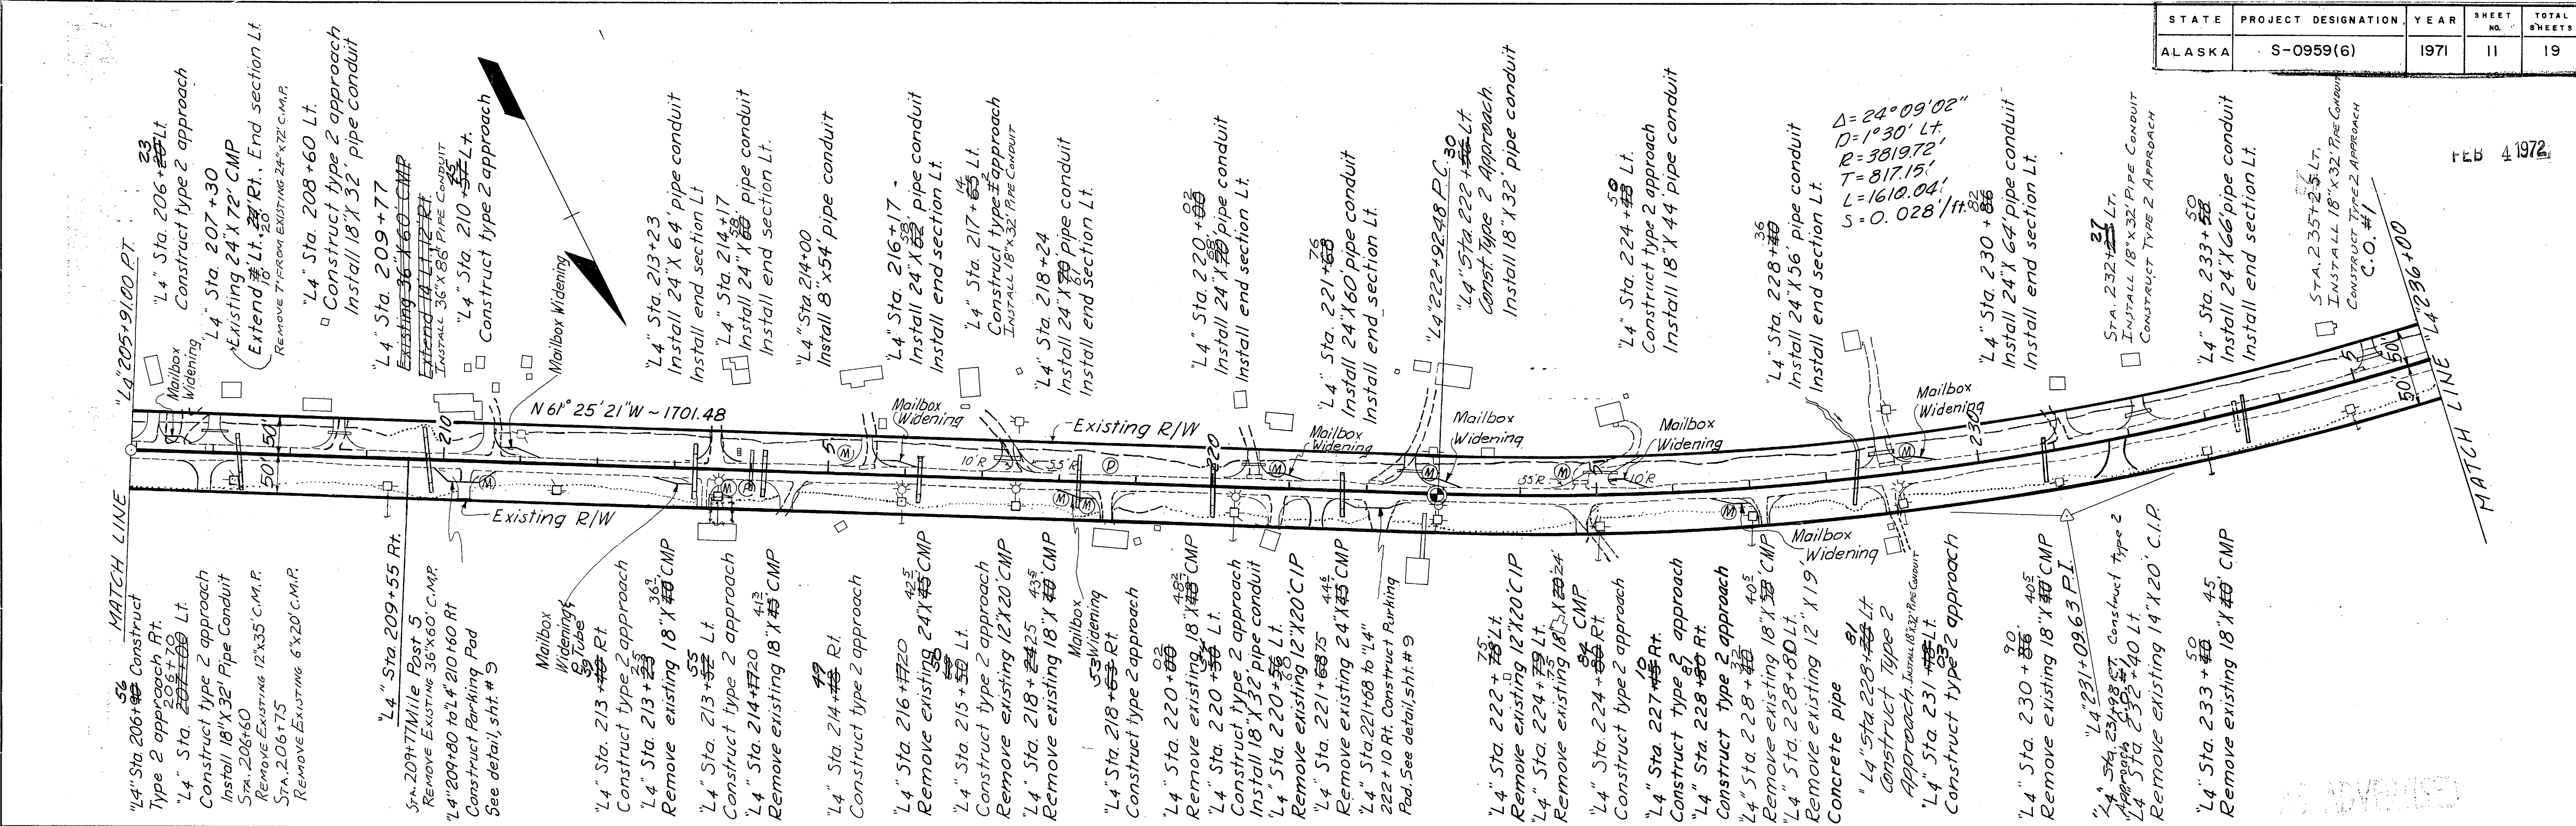 STATE PROJECT DESIGNATION YEAR SHEET NO. TOTAL SHEETS
ALASKA S-0959(6) 1971 11 19
FEB 4 1972
"L4" 205+91.00 P.T.
23
"L4" Sta. 206+20 Lt.
Construct type 2 approach
"L4" Sta. 207+30
Existing 24"X 72' CMP
Extend Lt. Rt., End section Lt.
10' 20'
REMOVE 7' FROM EXISTING 24"x72' C.M.P.
"L4" Sta. 208+60 Lt.
Construct type 2 approach
Install 18"X 32' pipe conduit
"L4" Sta. 209+77
Existing 36"X 60' CMP
Extend 14' Lt., 12' Rt.
INSTALL 36"x86' PIPE CONDUIT
45
"L4" Sta. 210+57 Lt.
Construct type 2 approach
Mailbox Widening
"L4" Sta. 213+23
Install 24"X 64' pipe conduit
Install end section Lt
"L4" Sta. 214+17
58'
Install 24"X 60' pipe conduit
Install end section Lt.
"L4" Sta. 214+00
Install 8"x54' pipe conduit
"L4" Sta. 216+17
58'
Install 24"X 62' pipe conduit
Install end section Lt.
14
"L4" Sta. 217+63 Lt.
Construct type 2 approach
INSTALL 18"x32' PIPE CONDUIT
"L4" Sta. 218+24
Install 24"X 70' pipe conduit
61
Install end section Lt.
02
"L4" Sta. 220+00
68'
Install 24"X 70' pipe conduit
Install end section Lt.
76
"L4" Sta. 221+68
Install 24"X 60' pipe conduit
Install end section Lt.
"L4" 222+92.48 P.C.
30
"L4" Sta. 222+56 Lt.
Const. Type 2 Approach.
Install 18"X 32' pipe conduit
50
"L4" Sta. 224+48 Lt.
Construct type 2 approach
Install 18"X 44' pipe conduit
36
"L4" Sta. 228+40
Install 24"X 56' pipe conduit
Install end section Lt.
Δ= 24°09'02"
D= 1°30' Lt.
R= 3819.72'
T= 817.15'
L= 1610.04'
S= 0.028'/ft.
82
"L4" Sta. 230+86
Install 24"X 64' pipe conduit
Install end section Lt.
27
STA. 232+25 LT.
INSTALL 18"x32' PIPE CONDUIT
CONSTRUCT TYPE 2 APPROACH
50
"L4" Sta. 233+58
Install 24"X 66' pipe conduit
Install end section Lt.
STA. 235+25 LT.
INSTALL 18"x32' PIPE CONDUIT
CONSTRUCT TYPE 2 APPROACH
C.O. #1
"L4" 236+00
MATCH LINE
Mailbox Widening
50'
50'
210
N 61° 25' 21" W ~ 1701.48
5
M
Mailbox Widening
10'R
55'R
P
Existing R/W
220
M
Mailbox Widening
M
Mailbox Widening
M
55'R
10'R
5
Mailbox Widening
M
Mailbox Widening
230
5
50'
50'
M
Existing R/W
M
P
M
M
M
Mailbox Widening
MATCH LINE
56
"L4" Sta. 206+90 Construct
Type 2 approach Rt.
206+70
"L4" Sta. 207+00 Lt.
Construct type 2 approach
Install 18"X32' Pipe Conduit
STA. 206+60
REMOVE EXISTING 12"x35' C.M.P.
STA. 206+75
REMOVE EXISTING 6"x20' C.M.P.
"L4" Sta. 209+55 Rt.
Mile Post 5
STA. 209+77
REMOVE EXISTING 36"x60' C.M.P.
"L4" 209+80 to "L4" 210+60 Rt
Construct Parking Pad
See detail, sht. # 9
Mailbox Widening
P Tube
39
"L4" Sta. 213+40 Rt.
Construct type 2 approach
25
"L4" Sta. 213+23
36⁹
Remove existing 18"X 40' CMP
55
"L4" Sta. 213+52 Lt.
Construct type 2 approach
"L4" Sta. 214+17 20
41³
Remove existing 18"X 45' CMP
49
"L4" Sta. 214+48 Rt.
Construct type 2 approach
"L4" Sta. 216+17 20
42⁵
Remove existing 24"X 45' CMP
"L4" Sta. 215+50 Lt.
Construct type 2 approach
Remove existing 12"X20' CMP
"L4" Sta. 218+24 25
43⁵
Remove existing 18"X 40' CMP
Mailbox Widening
53
"L4" Sta. 218+63 Rt.
Construct type 2 approach
02
"L4" Sta. 220+00
48²
Remove existing 18"X 48' CMP
"L4" Sta. 220+50 Lt.
Construct type 2 approach
Install 18"X 32' pipe conduit
"L4" Sta. 220+56 Lt.
60
Remove existing 12"X20' CIP
"L4" Sta. 221+68 75
44⁴
Remove existing 24"X 45' CMP
"L4" Sta 221+68 to "L4"
222+10 Rt. Construct Parking
Pad. See detail, sht. # 9
75
"L4" Sta. 222+78 Lt.
Remove existing 12"X20' CIP
"L4" Sta. 224+79 Lt.
75
Remove existing 18"X 20' 24'
CMP
84
"L4" Sta. 224+80 Rt.
Construct type 2 approach
10
"L4" Sta. 227+45 Rt.
Construct type 2 approach
81
"L4" Sta. 228+80 Rt.
Construct type 2 approach
32
"L4" Sta. 228+40
40⁵
Remove existing 18"X 38' CMP
"L4" Sta. 228+80 Lt.
Remove existing 12"X 19'
Concrete pipe
81
"L4" Sta 228+76 Lt
Construct Type 2
Approach. INSTALL 18"x32' PIPE CONDUIT
"L4" Sta. 231+78 Lt.
03
Construct type 2 approach
90
"L4" Sta. 230+86
40⁵
Remove existing 18"X 40' CMP
"L4" 231+09.63 P.I.
"L4" Sta. 231+98 RT. Construct type 2
Approach C.O. #1
"L4" Sta 232+40 Lt.
Remove existing 14"X20' C.I.P.
50
"L4" Sta. 233+58
45
Remove existing 18"X 40' CMP
AS ADVERTISED